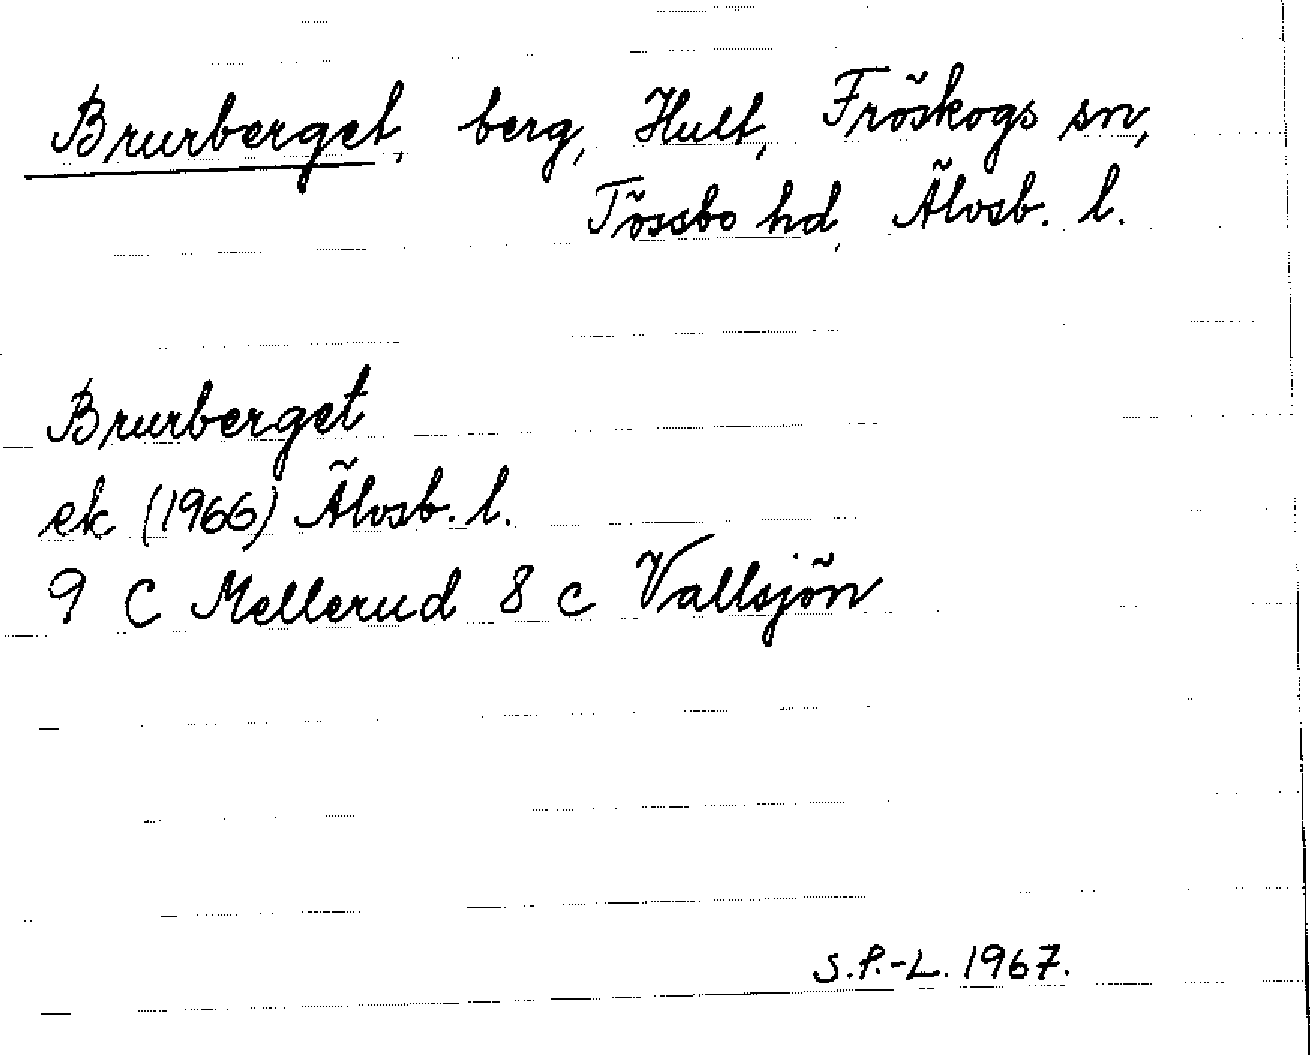 Brurberget, berg, Hult, Fröskogs sn,
Tössbo hd, Älvsb. l.
Brurberget
ek (1966) Älvsb. l.
9 C Mellerud 8 c Vallsjön
S.P.-L. 1967.